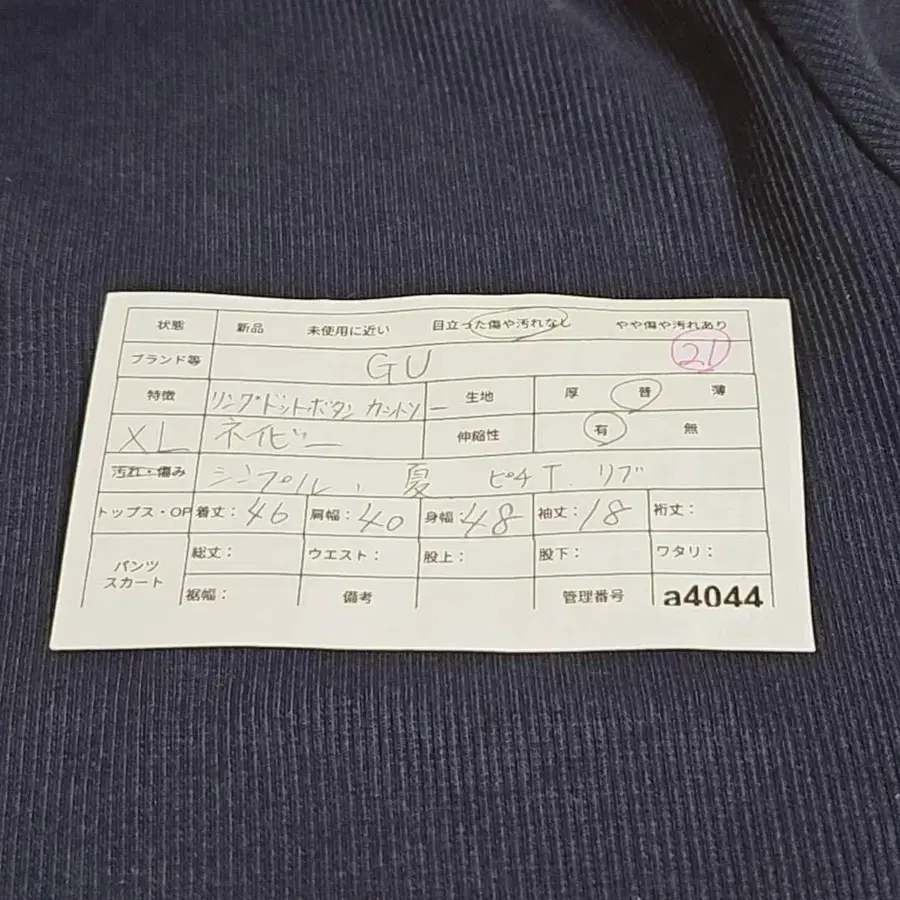 状態 新品 未使用に近い 目立った傷や汚れなし やや傷や汚れあり
ブランド等 GU 21
特徴 リングドットボタン カットソー 生地 厚 普 薄
XL ネイビー 伸縮性 有 無
汚れ・傷み シンプル、夏 ピチT. リブ
トップス・OP 着丈：46 肩幅：40 身幅：48 袖丈：18 裄丈：
パンツ スカート 総丈： ウエスト： 股上： 股下： ワタリ：
裾幅： 備考 管理番号 a4044